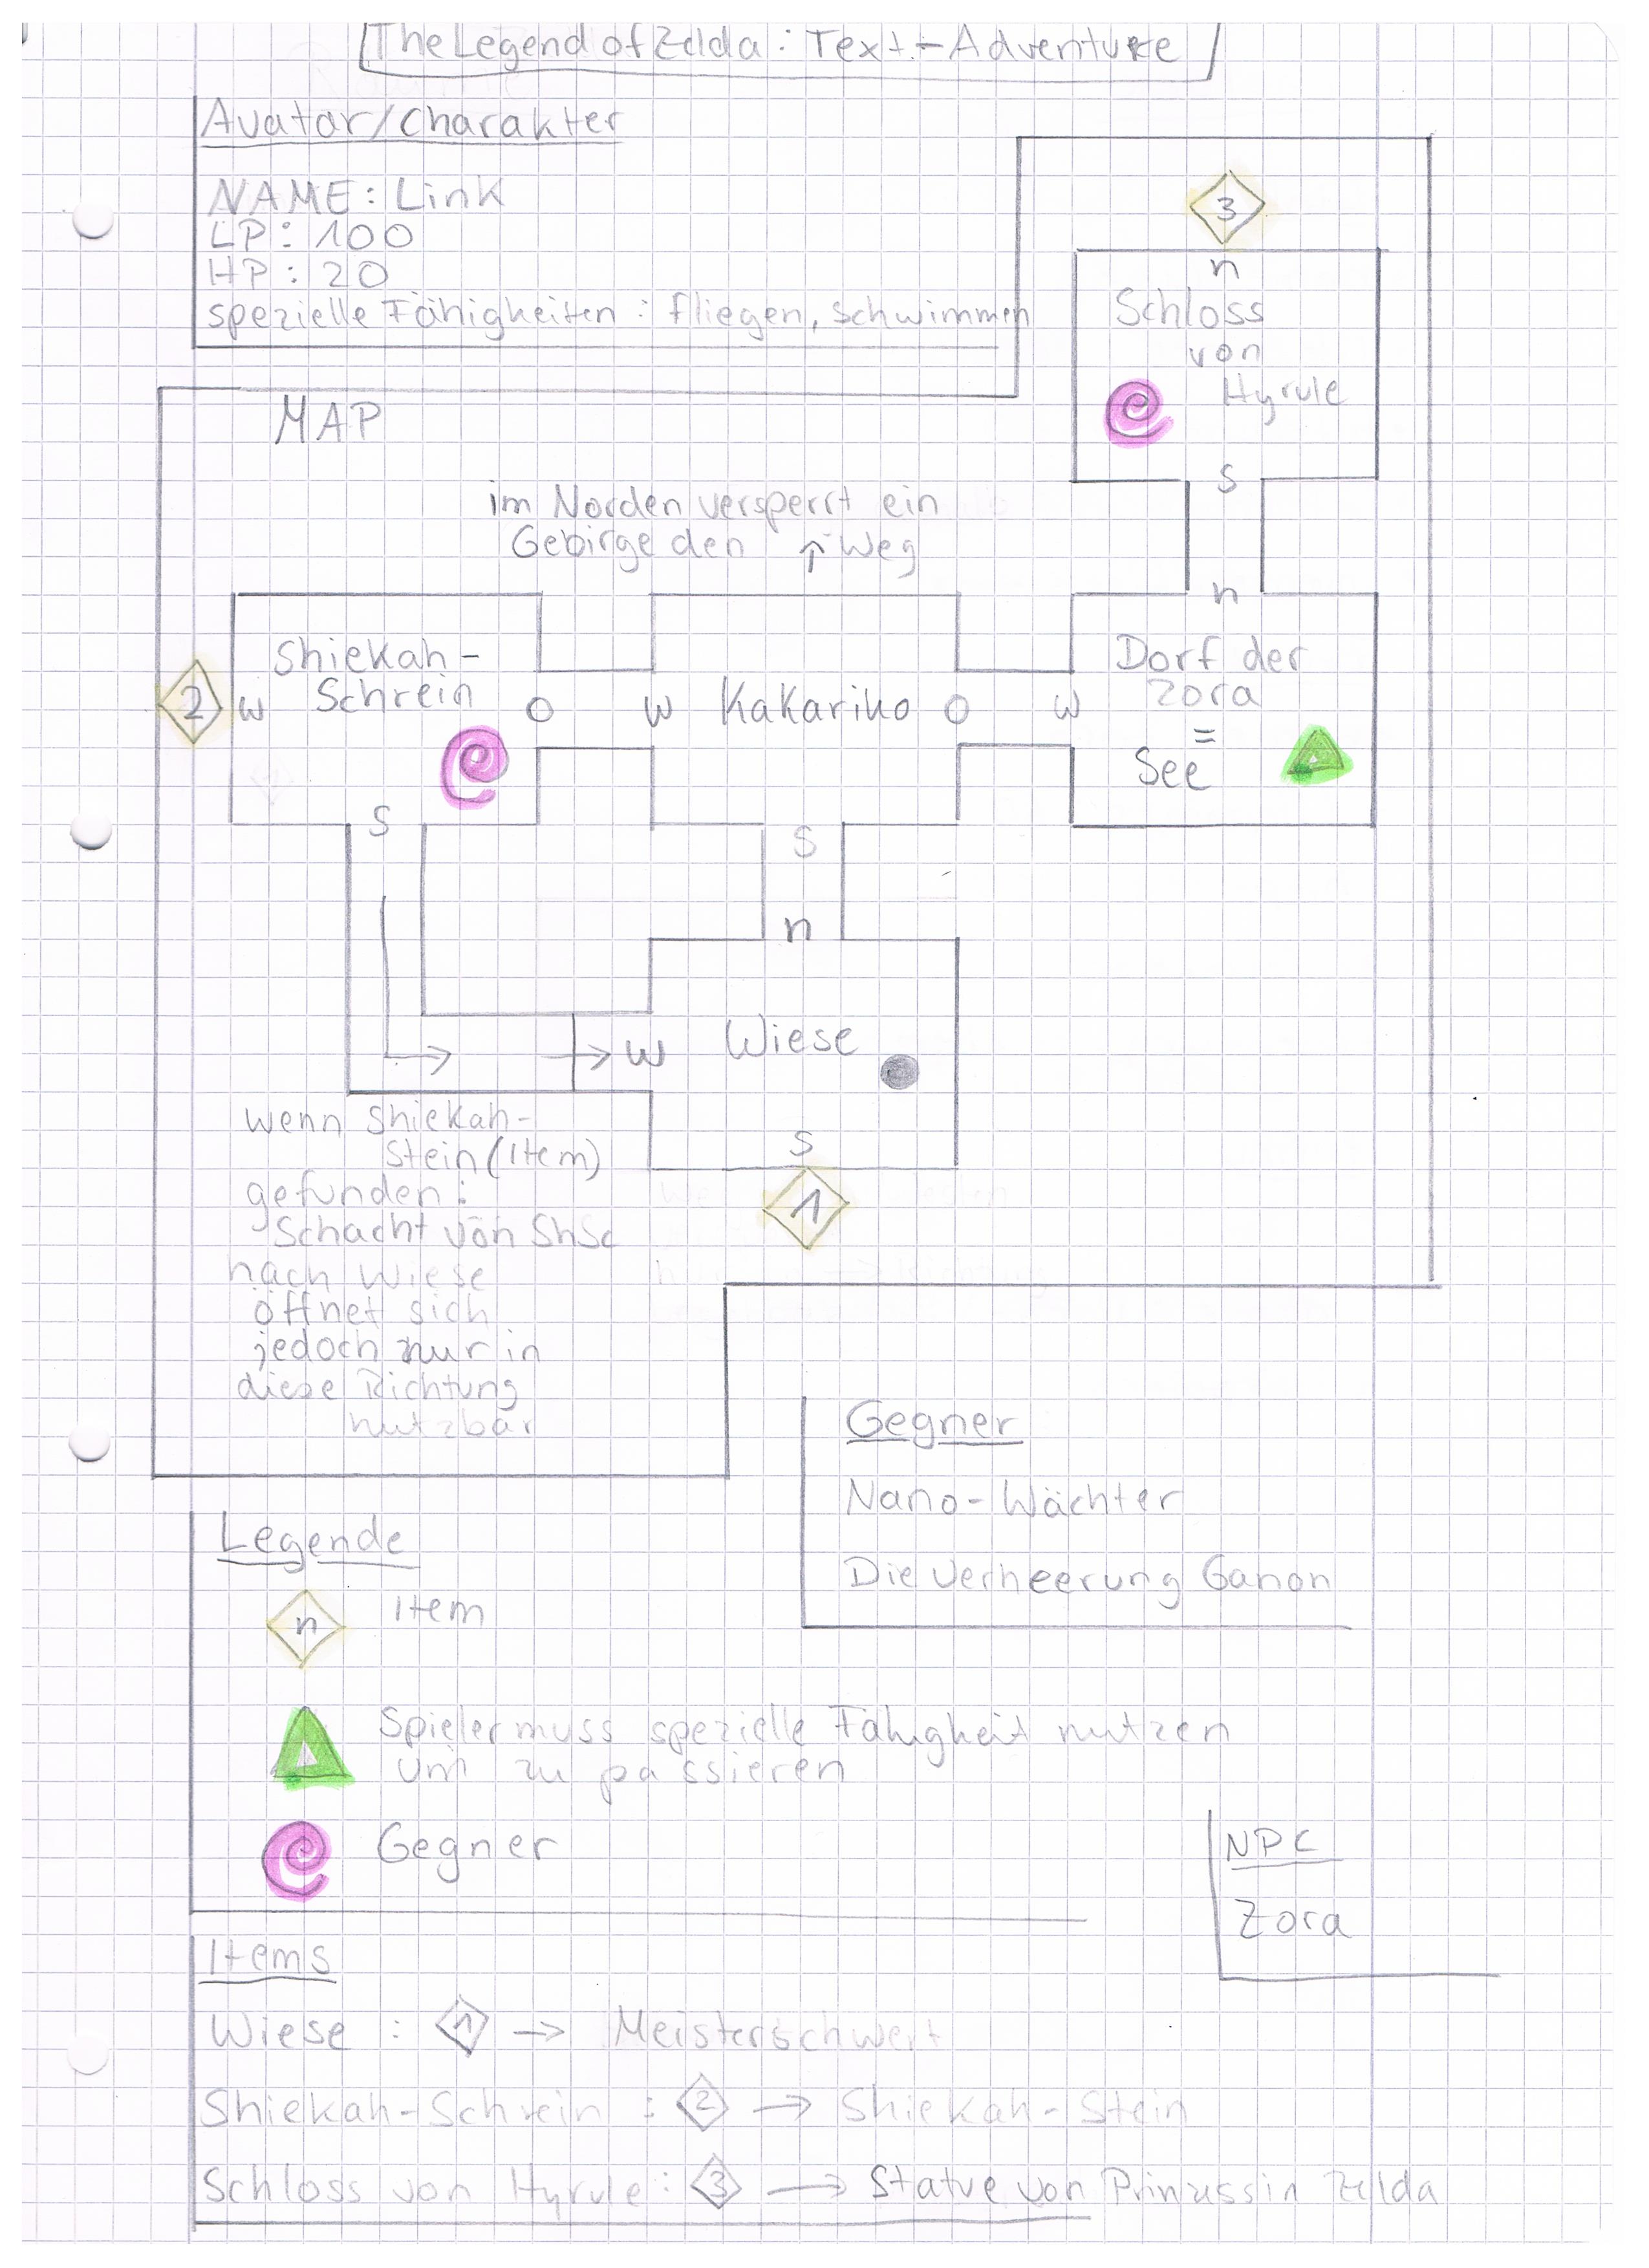 The Legend of Zelda: Text-Adventure
Avatar/Charakter
NAME: Link
LP: 100
HP: 20
spezielle Fähigkeiten: fliegen, schwimmen
3
n
Schloss
von
Hyrule
e
s
MAP
im Norden versperrt ein
Gebirge den ↑ Weg
n
Shiekah-
Schrein
2 w
o
e
s
w Kakariko o
s
w
Dorf der
Zora
=
See
n
Wiese
→ → w
s
1
wenn Shiekah-
Stein (Item)
gefunden:
Schacht von ShSc
nach Wiese
öffnet sich
jedoch nur in
diese Richtung
nutzbar
Gegner
Nano-Wächter
Die Verheerung Ganon
Legende
n Item
Spieler muss spezielle Fähigkeit nutzen
um zu passieren
e Gegner
NPC
Zora
Items
Wiese : 1 → Meisterschwert
Shiekah-Schrein : 2 → Shiekah-Stein
Schloss von Hyrule: 3 → Statue von Prinzessin Zelda